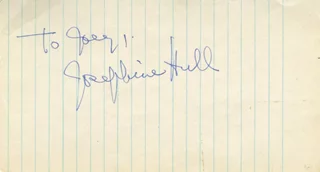 To Joey,
Josephine Hull